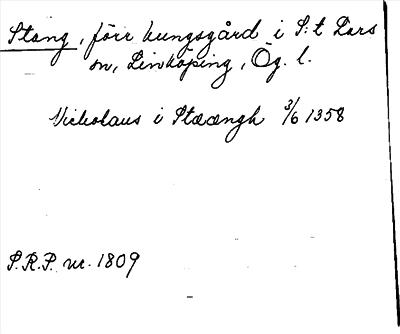 Stang, förr kungsgård i S:t Lars
sn, Linköping, Ög. l.
Nickolaus i Staængh 3/6 1358
S.R.P. nr. 1809